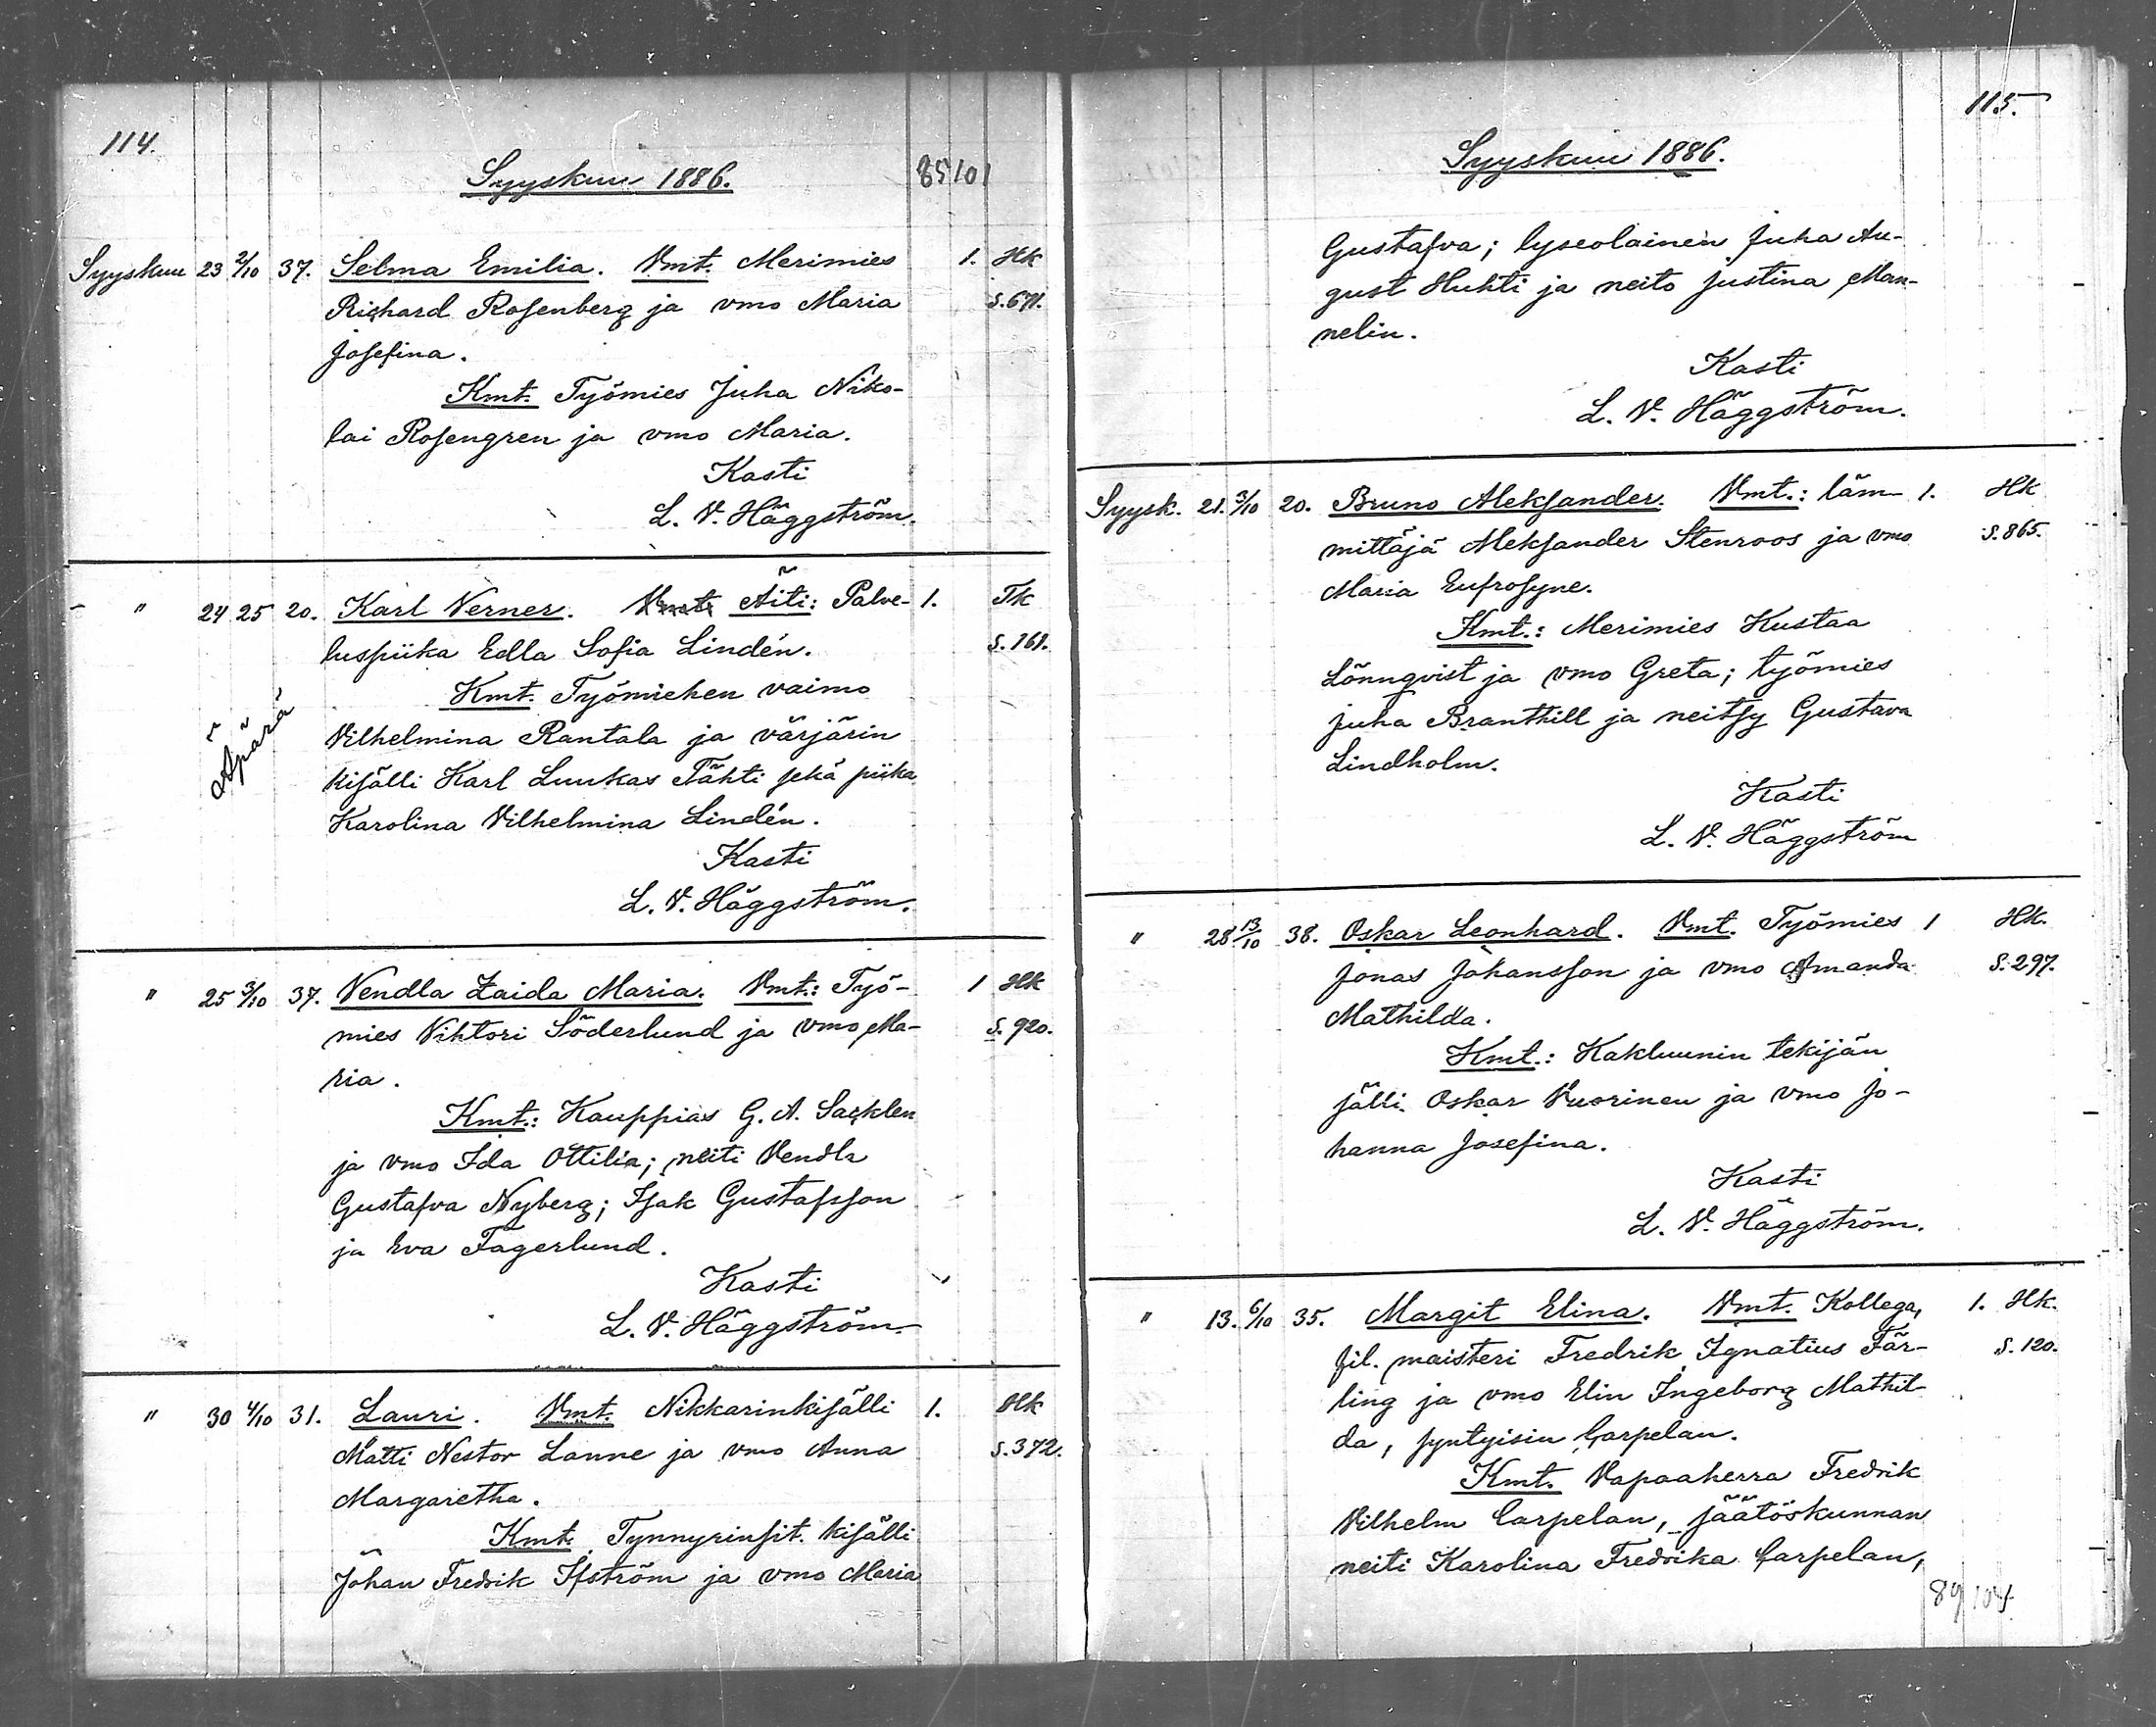 114.
Syyskuu 1886.
85 101
Syyskuu 23 2/10 37. Selma Emilia. Vmt. Merimies 1. Hk
Richard Rosenberg ja vmo Maria S. 671.
Josefina.
Kmt. Työmies Juha Niko-
lai Rosengren ja vmo Maria.
Kasti
L. V. Häggström.
" 24 25 20. Karl Verner. Vmt: Äiti: Palve- 1. Tk
luspiika Edla Sofia Lindén. S. 161.
Äpärä
Kmt. Työmiehen vaimo
Vilhelmina Rantala ja värjärin
kisälli Karl Luukas Tähti sekä piika
Karolina Vilhelmina Lindén.
Kasti
L. V. Häggström.
" 25 3/10 37. Vendla Zaida Maria. Vmt.: Työ- 1 Hk
mies Vihtori Söderlund ja vmo Ma- S. 920.
ria.
Kmt.: Kauppias G. A. Sacklen
ja vmo Ida Ottilia; neiti Vendla
Gustafva Nyberg; Isak Gustafsson
ja Eva Fagerlund.
Kasti
L. V. Häggström.
" 30 4/10 31. Lauri. Vmt. Nikkarinkisälli 1. Hk
Matti Nestor Lanne ja vmo Anna S. 372.
Margaretha.
Kmt. Tynnyrinsit. kisälli
Johan Fredrik Ifström ja vmo Maria
115.
Syyskuu 1886.
Gustafva; lyseolainen Juha Au-
gust Huhti ja neito Justina Man-
nelin.
Kasti
L. V. Häggström.
Syysk. 21. 3/10 20. Bruno Aleksander. Vmt.: läm- 1. Hk
mittäjä Aleksander Stenroos ja vmo S. 865.
Maria Eufrosyne.
Kmt.: Merimies Kustaa
Lönnqvist ja vmo Greta; työmies
Juha Branthill ja neitsy Gustava
Lindholm.
Kasti
L. V. Häggström
" 28 13/10 38. Oskar Leonhard. Vmt. Työmies 1 Hk.
Jonas Johansson ja vmo Amanda S. 297.
Mathilda.
Kmt.: Kakluunin tekijän
sälli Oskar Vuorinen ja vmo Jo-
hanna Josefina.
Kasti
L. V. Häggström.
" 13. 6/10 35. Margit Elina. Vmt. Kollega, 1. Hk.
fil. maisteri Fredrik Ignatius Fär- S. 120.
ling ja vmo Elin Ingeborg Mathil-
da, syntyisin Carpelan.
Kmt. Vapaaherra Fredrik
Vilhelm Carpelan, säätöskunnan
neiti Karolina Fredrika Carpelan,
89 104.